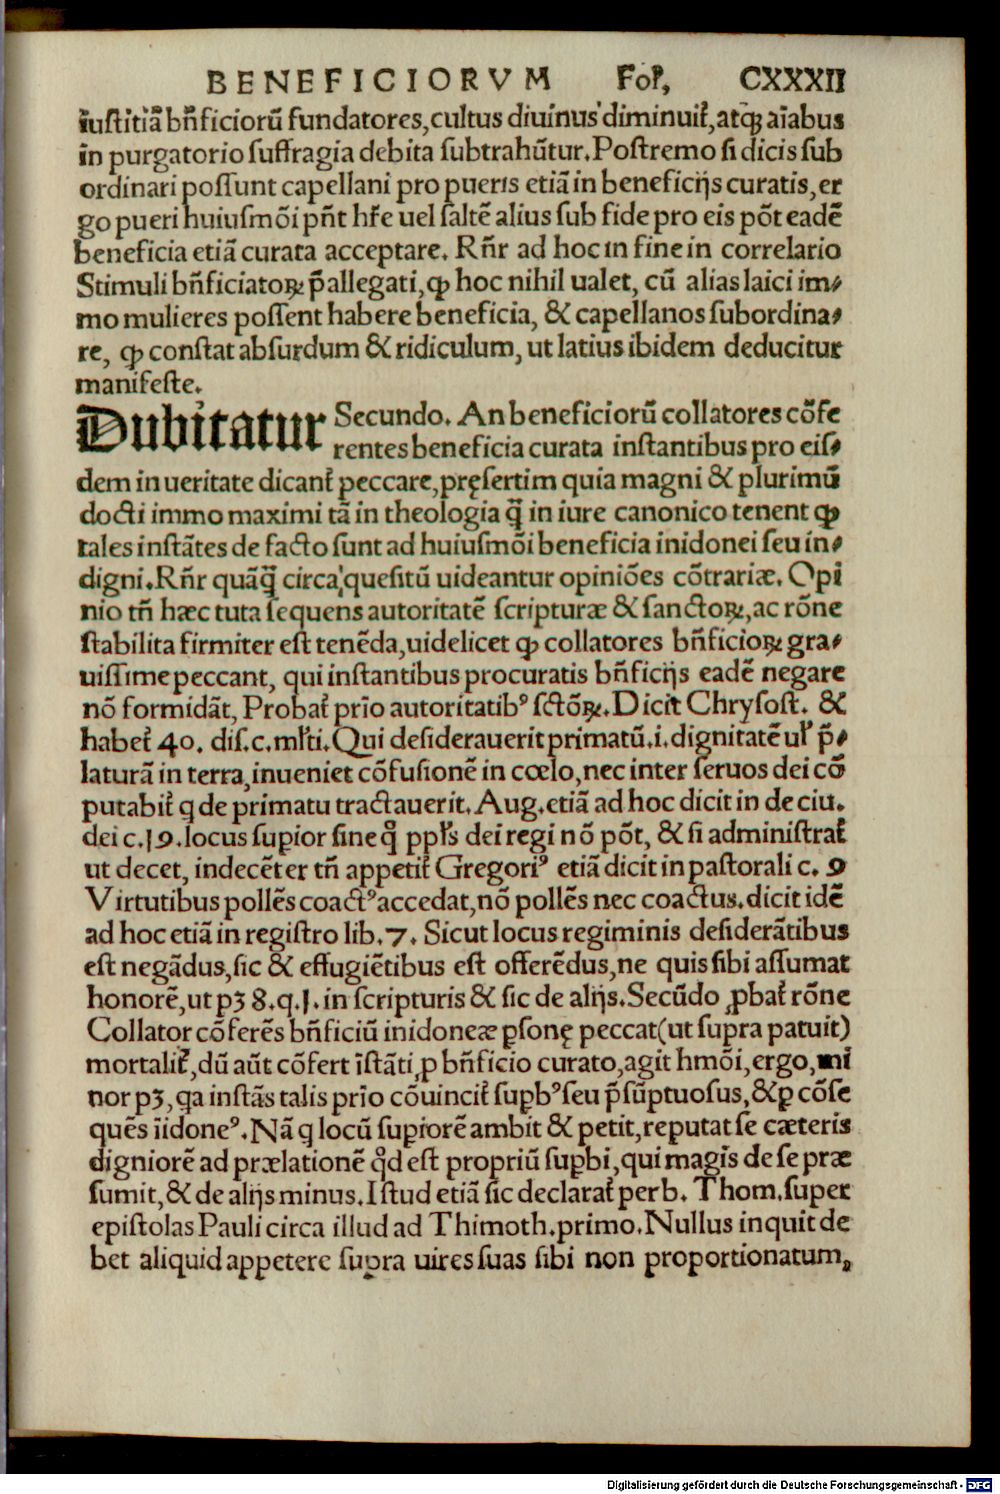 BENEFICIORVM Fol. CXXXII
iustitiā bn̄ficiorū fundatores, cultus diuinus diminuit᷑, atqꝫ aīabus
in purgatorio ſuffragia debita ſubtrahūtur. Poſtremo ſi dicis ſub
ordinari poſſunt capellani pro pueris etiā in beneficijs curatis, er
go pueri huiuſmōi pn̄t hr̄e uel ſaltē alius ſub fide pro eis pōt eadē
beneficia etiā curata acceptare. Rn̄r ad hoc in fine in correlario
Stimuli bn̄ficiatoꝝ p̄allegati, ꝙ hoc nihil ualet, cū alias laici im⸗
mo mulieres poſſent habere beneficia, & capellanos ſubordina⸗
re, ꝙ conſtat abſurdum & ridiculum, ut latius ibidem deducitur
manifeſte.
Dubitatur Secundo. An beneficiorū collatores cōfe
rentes beneficia curata inſtantibus pro eiſ⸗
dem in ueritate dicant᷑ peccare, pręſertim quia magni & plurimū
docti immo maximi tā in theologia q̄ in iure canonico tenent ꝙ
tales inſtātes de facto ſunt ad huiuſmōi beneficia inidonei ſeu in⸗
digni. Rn̄r quāq̄ circa queſitū uideantur opiniōes cōtrariæ. Opi
nio tn̄ hæc tuta ſequens autoritatē ſcripturæ & ſanctoꝝ, ac rōne
ſtabilita firmiter eſt tenēda, uidelicet ꝙ collatores bn̄ficioꝝ gra⸗
uiſſime peccant, qui inſtantibus procuratis bn̄ficijs eadē negare
nō formidāt, Probat᷑ prīo autoritatibꝰ ſctōꝝ. Dicit Chryſoſt. &
habet᷑ 40. diſ. c. ml̄ti. Qui deſiderauerit primatū .i. dignitatē ul̄ p̄⸗
laturā in terra, inueniet cōfuſionē in cœlo, nec inter ſeruos dei cō
putabit᷑ q de primatu tractauerit. Aug. etiā ad hoc dicit in de ciu.
dei c. 19. locus ſuꝑior ſine q̊ ppl̄s dei regi nō pōt, & ſi adminiſtrat᷑
ut decet, indecēter tn̄ appetit᷑ Gregoriꝰ etiā dicit in paſtorali c. 9
Virtutibus pollēs coactꝰ accedat, nō pollēs nec coactus. dicit idē
ad hoc etiā in regiſtro lib. 7. Sicut locus regiminis deſiderātibus
eſt negādus, ſic & effugiētibus eſt offerēdus, ne quis ſibi aſſumat
honorē, ut pꝫ 8. q. 1. in ſcripturis & ſic de alijs. Secūdo ꝓbat᷑ rōne
Collator cōferēs bn̄ficiū inidoneæ ꝑſonę peccat (ut ſupra patuit)
mortalit᷑, dū aūt cōfert īſtāti ꝓ bn̄ficio curato, agit hmōi, ergo, mi
nor pꝫ, qa inſtās talis prīo cōuincit᷑ ſuꝑbꝰ ſeu p̄ſūptuoſus, & ꝑ cōſe
quēs iīdoneꝰ. Nā q locū ſuꝑiorē ambit & petit, reputat ſe cæteris
digniorē ad prælationē qd̓ eſt propriū ſuꝑbi, qui magis de ſe præ
ſumit, & de alijs minus. Iſtud etiā ſic declarat᷑ per b. Thom. ſuper
epiſtolas Pauli circa illud ad Thimoth. primo. Nullus inquit de
bet aliquid appetere ſupra uires ſuas ſibi non proportionatum,
Digitalisierung gefördert durch die Deutsche Forschungsgemeinschaft - DFG